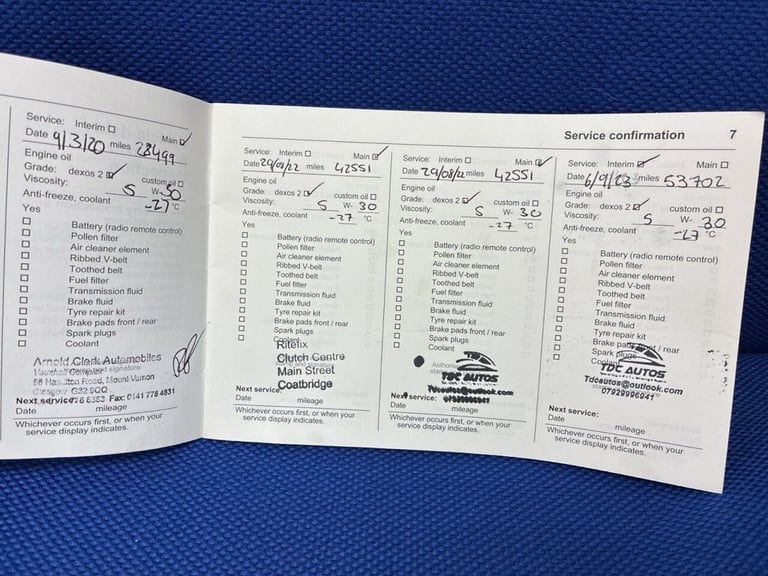 Service confirmation 7
Service: Interim Main
Date 9/3/20 miles 28499
Engine oil
Grade: dexos 2 custom oil
Viscosity: 5 W-30
Anti-freeze, coolant -27 °C
Yes
Battery (radio remote control)
Pollen filter
Air cleaner element
Ribbed V-belt
Toothed belt
Fuel filter
Transmission fluid
Brake fluid
Tyre repair kit
Brake pads front / rear
Spark plugs
Coolant
Arnold Clark Automobiles
Next service: Fax: 0141 778 4831
Date mileage
Whichever occurs first, or when your
service display indicates.
Service: Interim Main
Date 29/08/22 miles 42551
Engine oil
Grade: dexos 2 custom oil
Viscosity: 5 W- 30
Anti-freeze, coolant -27 °C
Yes
Battery (radio remote control)
Pollen filter
Air cleaner element
Ribbed V-belt
Toothed belt
Fuel filter
Transmission fluid
Brake fluid
Tyre repair kit
Brake pads front / rear
Spark plugs
Coolant
Clutch Centre
Main Street
Coatbridge
Next service:
Date mileage
Whichever occurs first, or when your
service display indicates.
Service: Interim Main
Date 29/08/22 miles 42551
Engine oil
Grade: dexos 2 custom oil
Viscosity: 5 W- 30
Anti-freeze, coolant -27 °C
Yes
Battery (radio remote control)
Pollen filter
Air cleaner element
Ribbed V-belt
Toothed belt
Fuel filter
Transmission fluid
Brake fluid
Tyre repair kit
Brake pads front / rear
Spark plugs
Coolant
TDC AUTOS
Tdcautos@outlook.com
Next service:
Date mileage
Whichever occurs first, or when your
service display indicates.
Service: Interim Main
Date 6/9/23 miles 53702
Engine oil
Grade: dexos 2 custom oil
Viscosity: 5 W- 30
Anti-freeze, coolant -27 °C
Yes
Battery (radio remote control)
Pollen filter
Air cleaner element
Ribbed V-belt
Toothed belt
Fuel filter
Transmission fluid
Brake fluid
Tyre repair kit
Brake pads front / rear
Spark plugs
Coolant
TDC AUTOS
Tdcautos@outlook.com
07929996941
Next service:
Date mileage
Whichever occurs first, or when your
service display indicates.